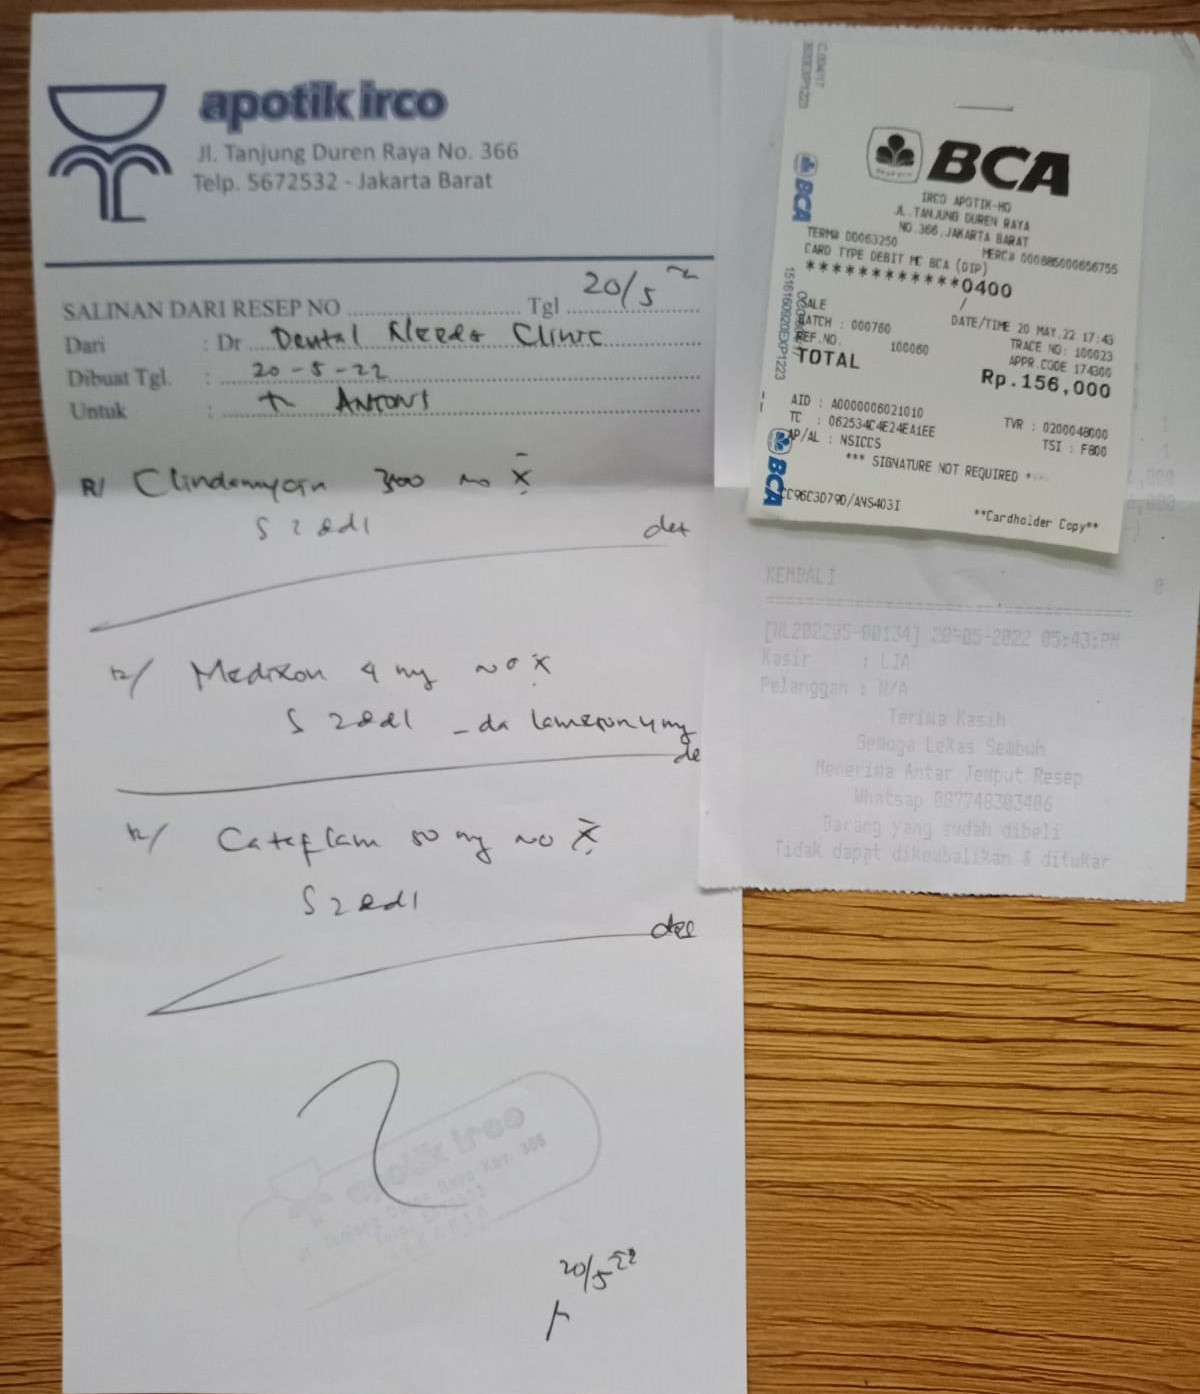 apotik irco
Jl. Tanjung Duren Raya No. 366
Telp. 5672532 - Jakarta Barat
SALINAN DARI RESEP NO Tgl 20/5 22
Dari : Dr Dental Needs Clinic
Dibuat Tgl. : 20-5-22
Untuk : Tn ANTONI
R/ Clindamycin 300 no X
S 2 dd 1 det
R/ Medixon 4 mg no X
S 2 dd 1 - da lameson 4 mg
de
R/ Cataflam 50 mg no X
S 2 dd 1
det
apotik irco
20/5 22
BCA
IRCO APOTIK-HO
JL.TANJUNG DUREN RAYA
NO.366,JAKARTA BARAT
TERM# D0063250 MERC# 000885000656755
CARD TYPE DEBIT MC BCA (DIP)
************0400
/
SALE DATE/TIME 20 MAY.22 17:43
BATCH : 000760 TRACE NO: 100023
REF.NO. 100060 APPR.CODE 174300
TOTAL Rp.156,000
AID : A0000006021010 TVR : 0200048000
TC : 062534C4E24EA1EE TSI : F800
AP/AL : NSICCS
*** SIGNATURE NOT REQUIRED *
CC96C3D79D/ANS403I
**Cardholder Copy**
BCA
BCA
KEMBALI 0
[NL202205-00134] 20-05-2022 05:43:PM
Kasir : LIA
Pelanggan : N/A
Terima Kasih
Semoga Lekas Sembuh
Menerima Antar Jemput Resep
Whatsap 087748303406
Barang yang sudah dibeli
Tidak dapat dikembalikan & ditukar